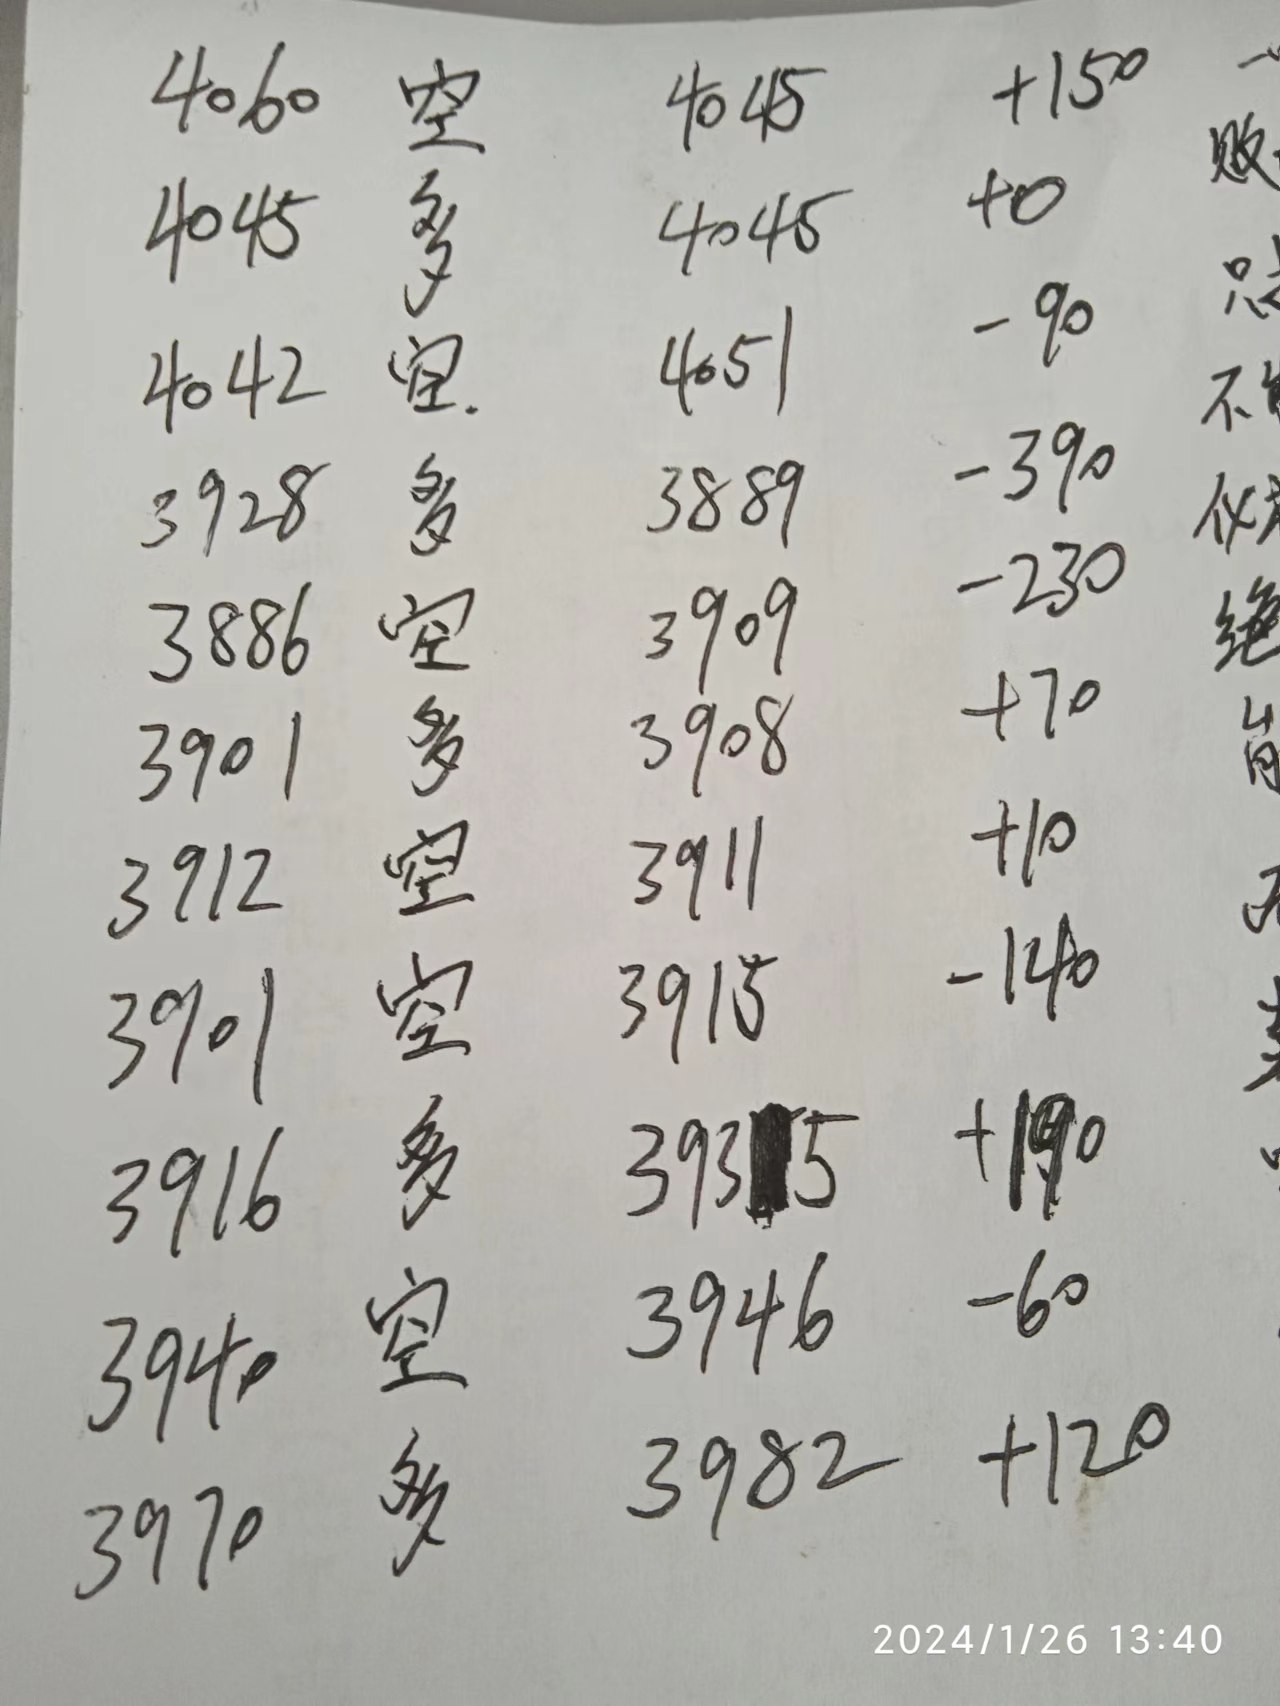 4060 空 4045 +150
4045 多 4045 +0
4042 空. 4051 -90
3928 多 3889 -390
3886 空 3909 -230
3901 多 3908 +70
3912 空 3911 +10
3901 空 3915 -140
3916 多 3935 +190
3940 空 3946 -60
3970 多 3982 +120
败
不
绝
2024/1/26 13:40